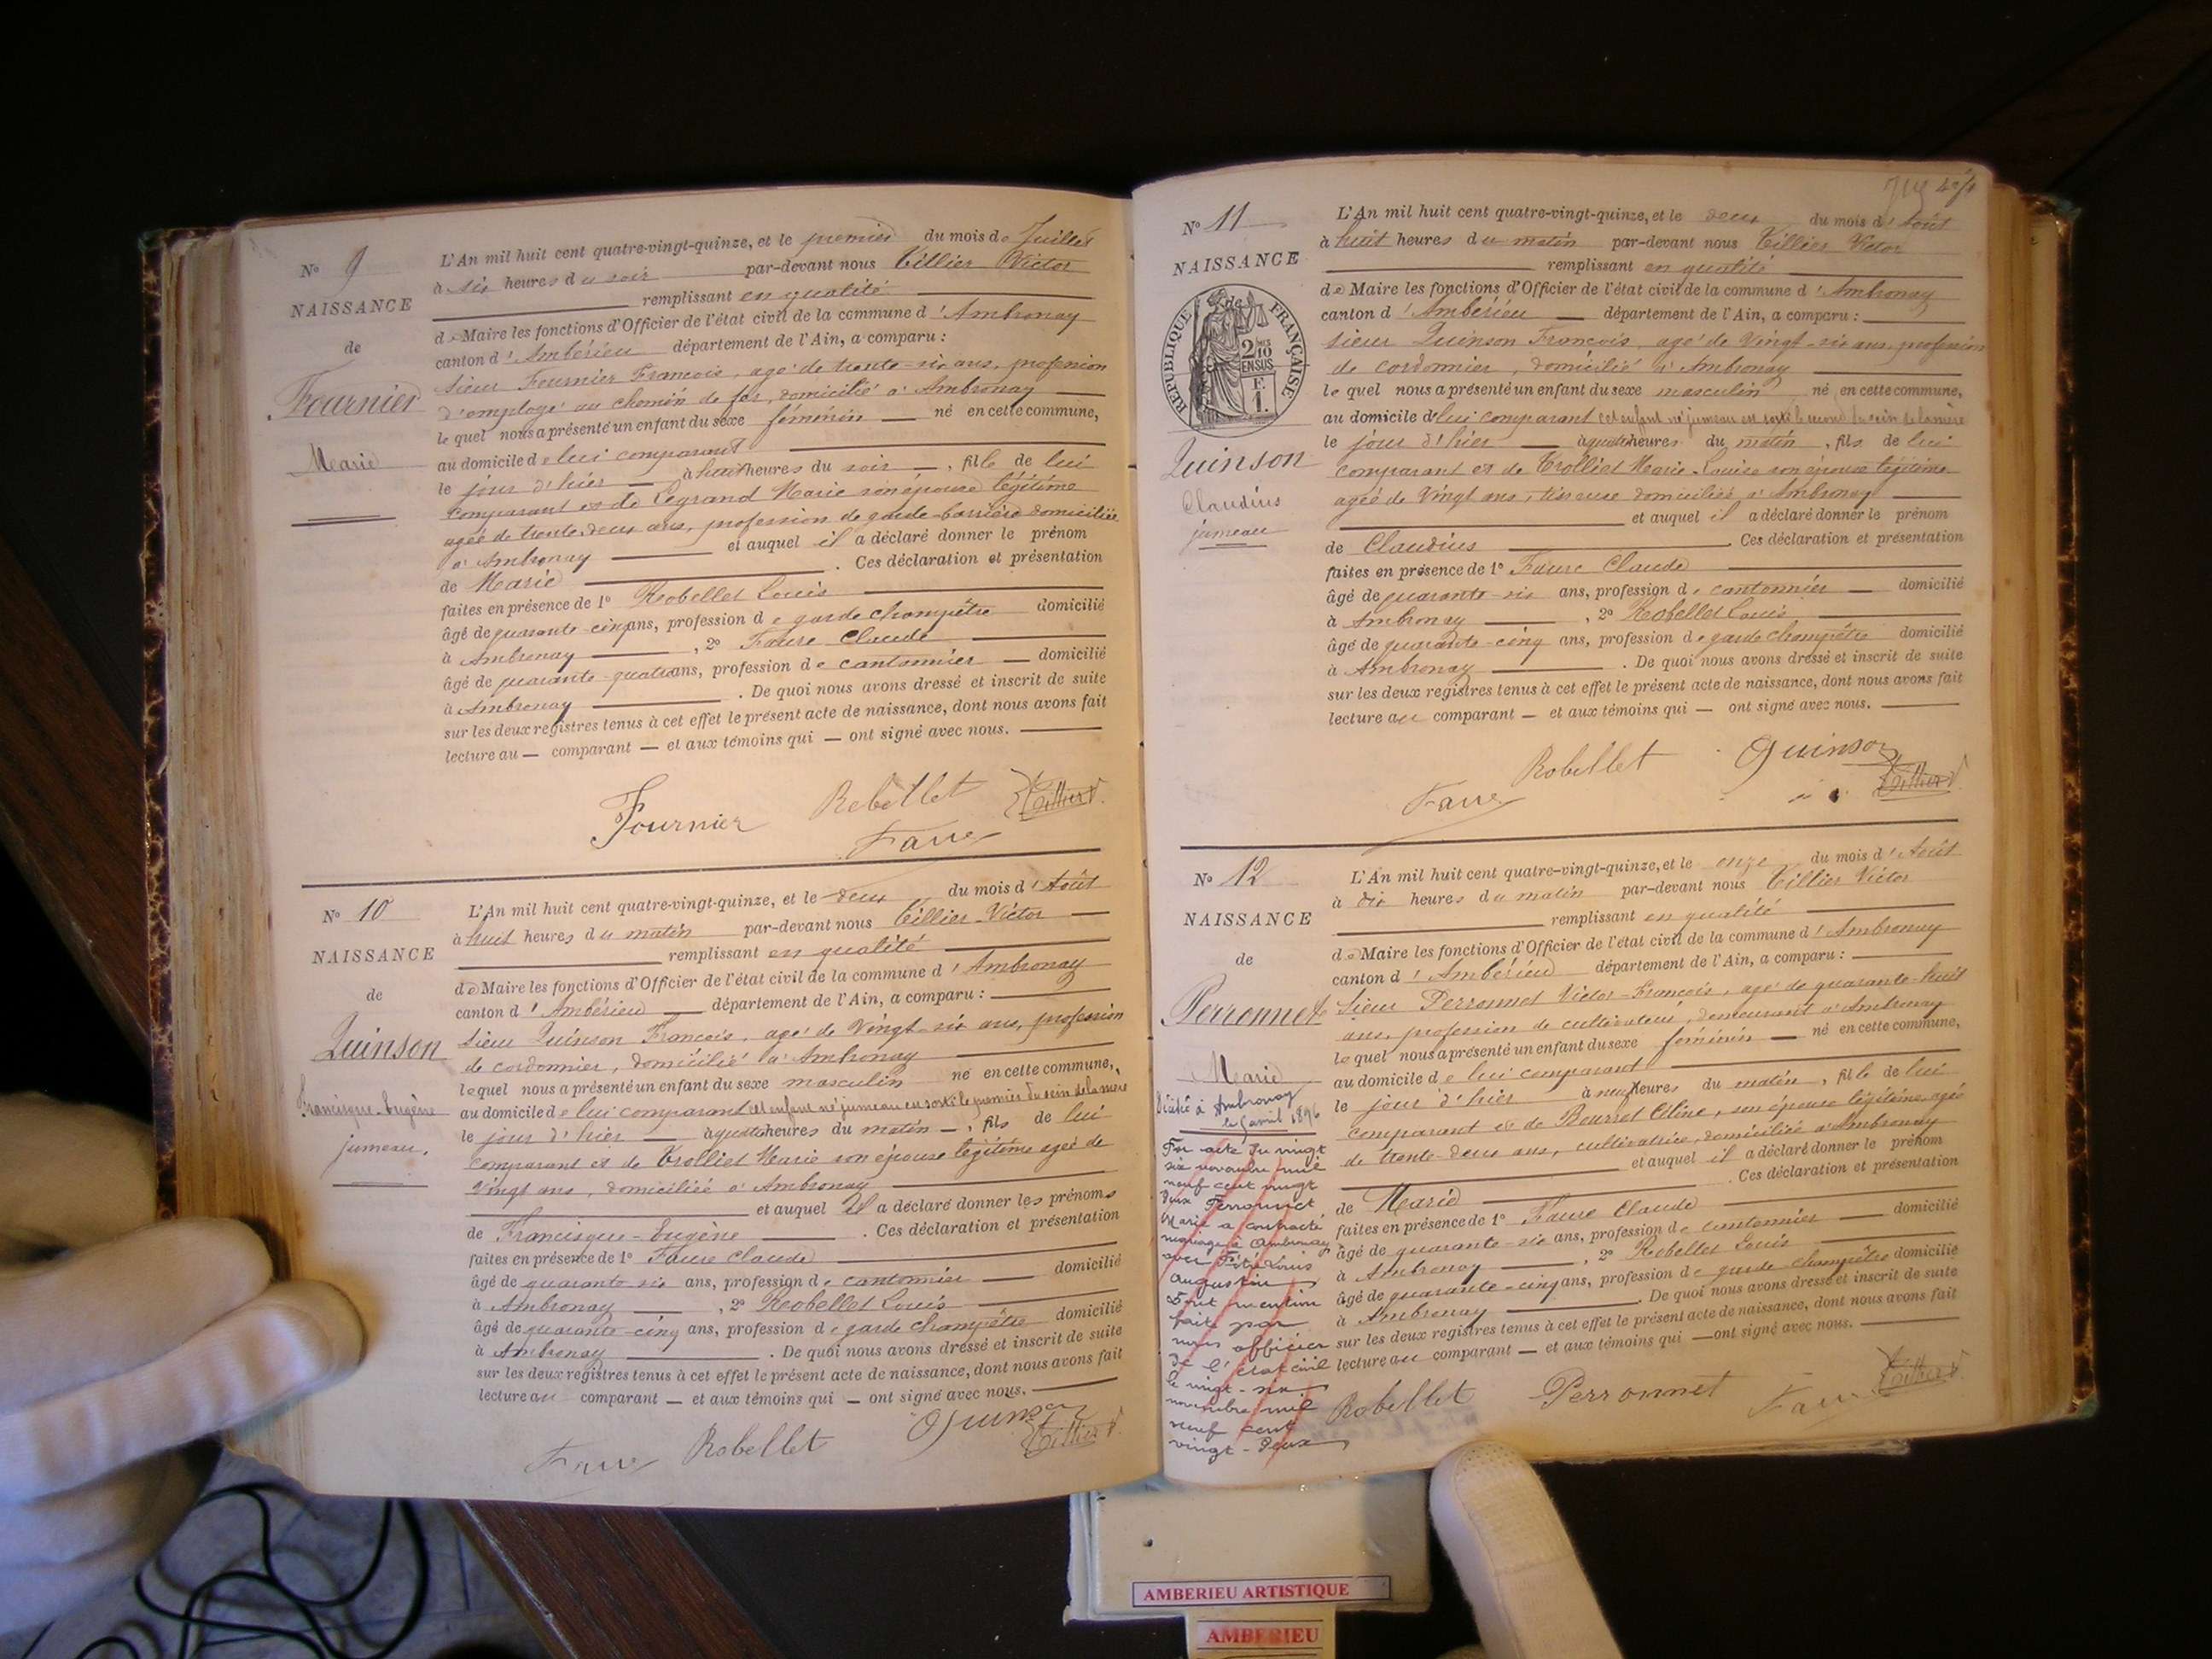 N° 9
NAISSANCE
de
Fournier
Marie
L'An mil huit cent quatre-vingt-quinze, et le premier du mois de Juillet
à six heures du soir par-devant nous Tillier Victor
remplissant en qualité
de Maire les fonctions d'Officier de l'état civil de la commune d'Ambronay
canton d'Ambérieu département de l'Ain, a comparu :
Sieur Fournier Francois, agé de trente-six ans, profession
d'employé au chemin de fer, domicilié à Ambronay
lequel nous a présenté un enfant du sexe féminin né en cette commune,
au domicile de lui comparant
le jour d'hier à huit heures du soir, fille de lui
comparant et de Legrand Marie son épouse légitime
agée de trente-deux ans, profession de garde-barrière domiciliée
à Ambronay et auquel il a déclaré donner le prénom
de Marie . Ces déclaration et présentation
faites en présence de 1° Robellet Louis
âgé de quarante-cinq ans, profession de garde champêtre domicilié
à Ambronay , 2° Faure Claude
âgé de quarante-quatre ans, profession de cantonnier domicilié
à Ambronay . De quoi nous avons dressé et inscrit de suite
sur les deux registres tenus à cet effet le présent acte de naissance, dont nous avons fait
lecture au comparant et aux témoins qui ont signé avec nous.
Fournier Robellet Tillier V.
Faure
N° 10
NAISSANCE
de
Quinson
Francisque-Eugène
jumeau.
L'An mil huit cent quatre-vingt-quinze, et le deux du mois d'Août
à huit heures du matin par-devant nous Tillier Victor
remplissant en qualité
de Maire les fonctions d'Officier de l'état civil de la commune d'Ambronay
canton d'Ambérieu département de l'Ain, a comparu :
Sieur Quinson Francois, agé de Vingt-six ans, profession
de cordonnier, domicilié à Ambronay
lequel nous a présenté un enfant du sexe masculin né en cette commune,
au domicile de lui comparant cet enfant né jumeau est sorti le premier du sein de la mère
le jour d'hier à quatre heures du matin, fils de lui
comparant et de Trolliet Marie son épouse légitime agée de
Vingt ans, domiciliée à Ambronay
et auquel Il a déclaré donner les prénoms
de Francisque-Eugène . Ces déclaration et présentation
faites en présence de 1° Faure Claude
âgé de quarante-six ans, profession de cantonnier domicilié
à Ambronay , 2° Robellet Louis
âgé de quarante-cinq ans, profession de garde champêtre domicilié
à Ambronay . De quoi nous avons dressé et inscrit de suite
sur les deux registres tenus à cet effet le présent acte de naissance, dont nous avons fait
lecture au comparant et aux témoins qui ont signé avec nous.
Faure Robellet Quinson Tillier V.
N° 11
NAISSANCE
de
RÉPUBLIQUE FRANÇAISE
2/10 EN SUS
F.
1.
Quinson
Claudius
jumeau
L'An mil huit cent quatre-vingt-quinze, et le deux du mois d'Août
à huit heures du matin par-devant nous Tillier Victor
remplissant en qualité
de Maire les fonctions d'Officier de l'état civil de la commune d'Ambronay
canton d'Ambérieu département de l'Ain, a comparu :
sieur Quinson Francois, agé de Vingt-six ans, profession
de cordonnier, domicilié à Ambronay
lequel nous a présenté un enfant du sexe masculin né en cette commune,
au domicile de lui comparant cet enfant né jumeau est sorti le second du sein de la mère
le jour d'hier à quatre heures du matin, fils de lui
comparant et de Trolliet Marie-Louise son épouse légitime
agée de Vingt ans, tisseuse domiciliée à Ambronay
et auquel il a déclaré donner le prénom
de Claudius . Ces déclaration et présentation
faites en présence de 1° Faure Claude
âgé de quarante-six ans, profession de cantonnier domicilié
à Ambronay , 2° Robellet Louis
âgé de quarante-cinq ans, profession de garde champêtre domicilié
à Ambronay . De quoi nous avons dressé et inscrit de suite
sur les deux registres tenus à cet effet le présent acte de naissance, dont nous avons fait
lecture au comparant et aux témoins qui ont signé avec nous.
Faure Robellet Quinson Tillier V
N° 12
NAISSANCE
de
Perronnet
Marie
Décédée à Ambronay
le 5 avril 1896
Par acte du vingt
six novembre mil
neuf cent vingt
deux Perronnet
Marie a contracté
mariage à Ambronay
avec Louis
Augustin
Dont mention
faite par
nous officier
de l'état civil
le vingt-six
novembre mil
neuf cent
vingt-deux
L'An mil huit cent quatre-vingt-quinze, et le onze du mois d'Août
à dix heures du matin par-devant nous Tillier Victor
remplissant en qualité
de Maire les fonctions d'Officier de l'état civil de la commune d'Ambronay
canton d'Ambérieu département de l'Ain, a comparu :
Sieur Perronnet Victor-Francois, agé de quarante-huit
ans, profession de cultivateur, demeurant à Ambronay
lequel nous a présenté un enfant du sexe féminin né en cette commune,
au domicile de lui comparant
le jour d'hier à neuf heures du matin, fille de lui
comparant et de Bourret Céline, son épouse légitime agée
de trente-deux ans, cultivatrice, domiciliée à Ambronay
et auquel il a déclaré donner le prénom
de Marie . Ces déclaration et présentation
faites en présence de 1° Faure Claude
âgé de quarante-six ans, profession de cantonnier domicilié
à Ambronay , 2° Robellet Louis
âgé de quarante-cinq ans, profession de garde-champêtre domicilié
à Ambronay . De quoi nous avons dressé et inscrit de suite
sur les deux registres tenus à cet effet le présent acte de naissance, dont nous avons fait
lecture au comparant et aux témoins qui ont signé avec nous.
Robellet Perronnet Faure Tillier V.
AMBERIEU ARTISTIQUE
AMBERIEU